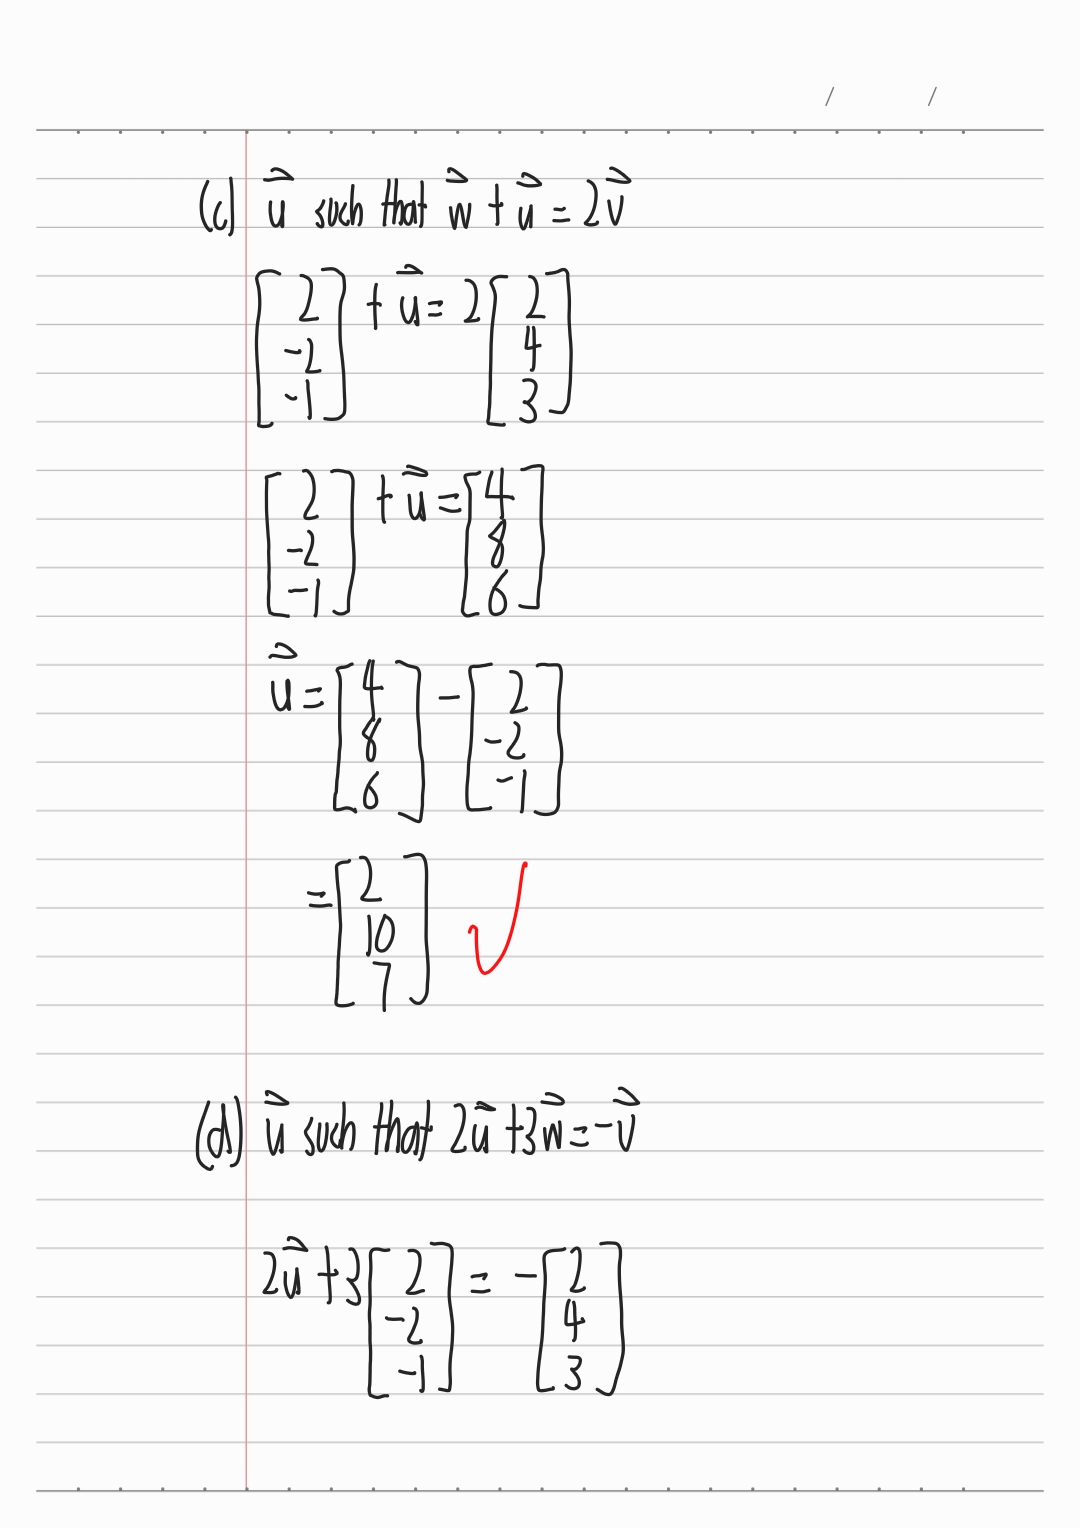 / /
(c) u⃗ such that w⃗ + u⃗ = 2v⃗
[2 -2 -1] + u⃗ = 2[2 4 3]
[2 -2 -1] + u⃗ = [4 8 6]
u⃗ = [4 8 6] - [2 -2 -1]
= [2 10 7] ✓
(d) u⃗ such that 2u⃗ + 3w⃗ = -v⃗
2u⃗ + 3[2 -2 -1] = -[2 4 3]